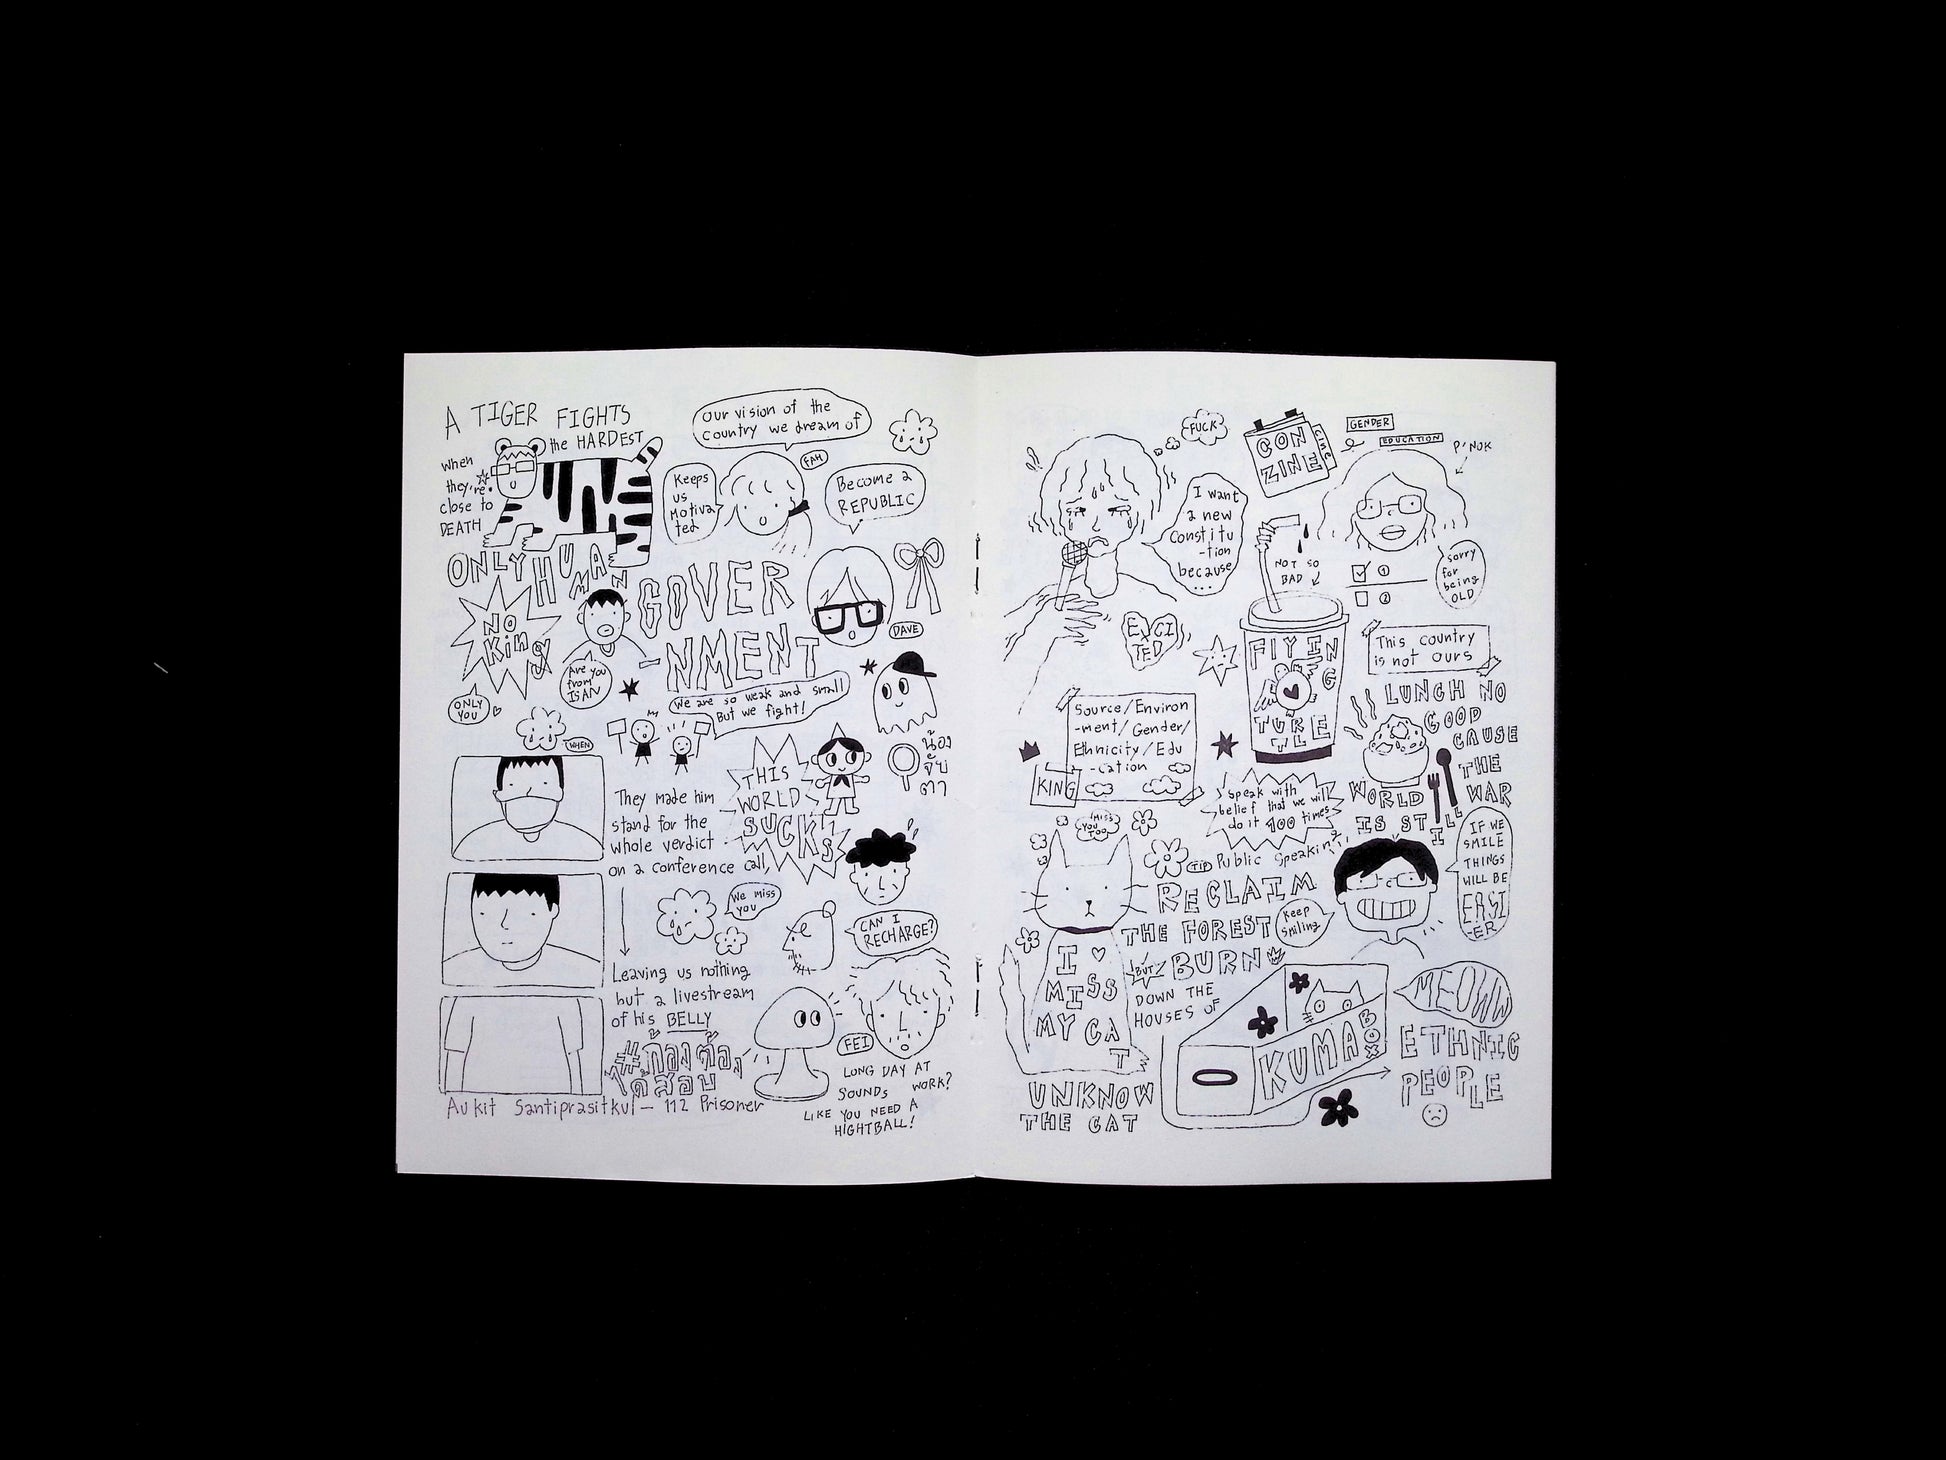 A TIGER FIGHTS
the HARDEST
when
they're
close to
DEATH
Our vision of the
country we dream of
FAH
Keeps
us
Motiva
ted
Become a
REPUBLIC
ONLY HUMAN
GOVER
NMENT
NO
King
Are you
from
ISAN
ONLY
YOU
DAVE
We are so weak and small
But we fight!
WHEN
THIS
WORLD
SUCKS
น้อง
จับ
ตา
They made him
stand for the
whole verdict
on a conference call,
We miss
you
CAN I
RECHARGE?
Leaving us nothing
but a livestream
of his BELLY
#ก้องต้อง
ได้สอบ
Aukit Santiprasitkul - 112 Prisoner
FEI
LONG DAY AT
WORK?
SOUNDS
LIKE YOU NEED A
HIGHTBALL!
FUCK
CON
ZINE
CINE
GENDER
EDUCATION
P'NOK
I want
a new
Constitu
-tion
because
...
NOT SO
BAD
1
2
Sorry
for
being
OLD
EXCI
TED
FlYING
TURTLE
This country
is not ours
LUNCH NO
GOOD
CAUSE
THE
WAR
WORLD
IS STILL
Source/Environ
-ment/Gender/
Ethnicity/Edu
-cation
KING
Speak with
belief that we will
do it 900 times
TIP Public Speaking
MISS
YOU
TOO
IF WE
SMILE
THINGS
WILL BE
EASI
-ER
RECLAIM
THE FOREST
Keep
Smiling
BUT BURN
DOWN THE
HOUSES OF
I
MISS
MY CA
T
KUMA BOX
MEOWW
ETHNIC
PEOPLE
UNKNOW
THE CAT